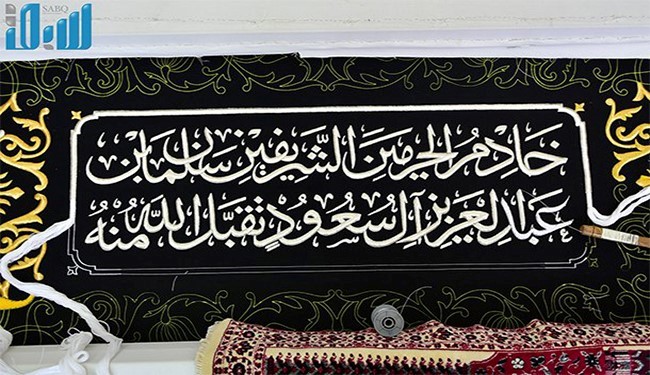 سبق
SABQ
خادم الحرمين الشريفين سلمان بن
عبدالعزيز آل سعود تقبل الله منه